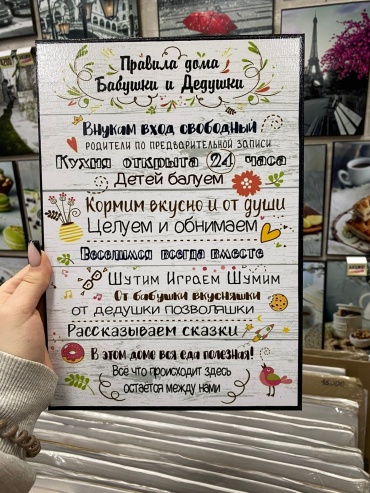 Правила дома
Бабушки и Дедушки
Внукам вход свободный
родители по предварительной записи
Кухня открыта 24 часа
Детей балуем
Кормим вкусно и от души
Целуем и обнимаем
Веселимся всегда вместе
Шутим Играем Шумим
От бабушки вкусняшки
от дедушки позволяшки
Рассказываем сказки
В этом доме вся еда полезная!
Всё что происходит здесь
остаётся между нами